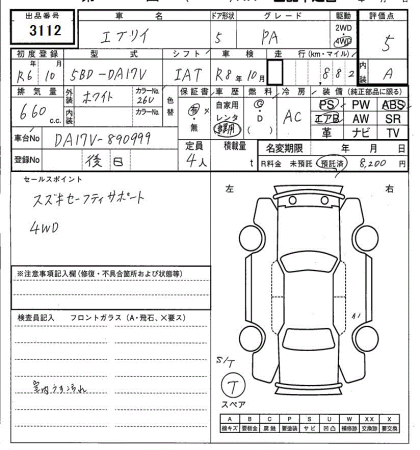 出品番号 車名 ドア形状 グレード 駆動 評価点
3112 エブリイ 5 PA 2WD 4WD 5
初度登録 型式 シフト 車検 走行(km・マイル) 内装
R6 10 5BD-DA17V IAT R8年10月 882 A
排気量 外装 カラーNo. 色替 保証書 車歴 燃料 冷房 装備(純正部品に限る)
660 c.c. ホワイト 26U 有・無 自家用 レンタ G D AC PS PW ABS
内装 カラーNo. エアB AW SR
革 ナビ TV
車台No DA17V-890999 定員 積載量 名変期限 年 月 日
登録No 後日 4人 t R料金 未預託 預託済 8,200 円
セールスポイント
スズキセーフティサポート
4WD
左 右
※注意事項記入欄(修復・不具合箇所および状態等)
検査員記入 フロントガラス(A・飛石、×要ス)
A1
S/T
T
スペア
室内うす汚れ
A B C P S U W XX X
線キズ 要板金 腐蝕 要塗装 サビ 凹凸 補修跡 交換跡 要交換